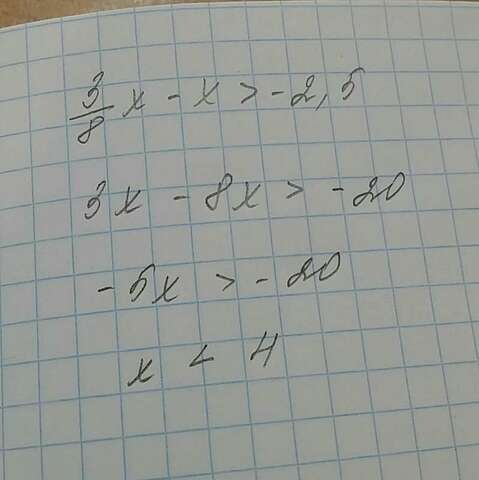 3/8 x - x > -2,5
3x - 8x > -20
-5x > -20
x < 4